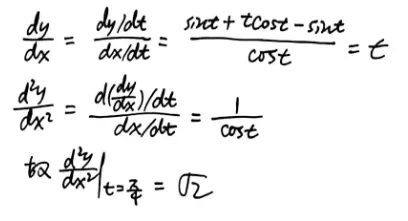 dy/dx = (dy/dt)/(dx/dt) = (sint + tcost - sint)/cost = t
d²y/dx² = (d(dy/dx)/dt)/(dx/dt) = 1/cost
故 d²y/dx² |t=π/4 = √2